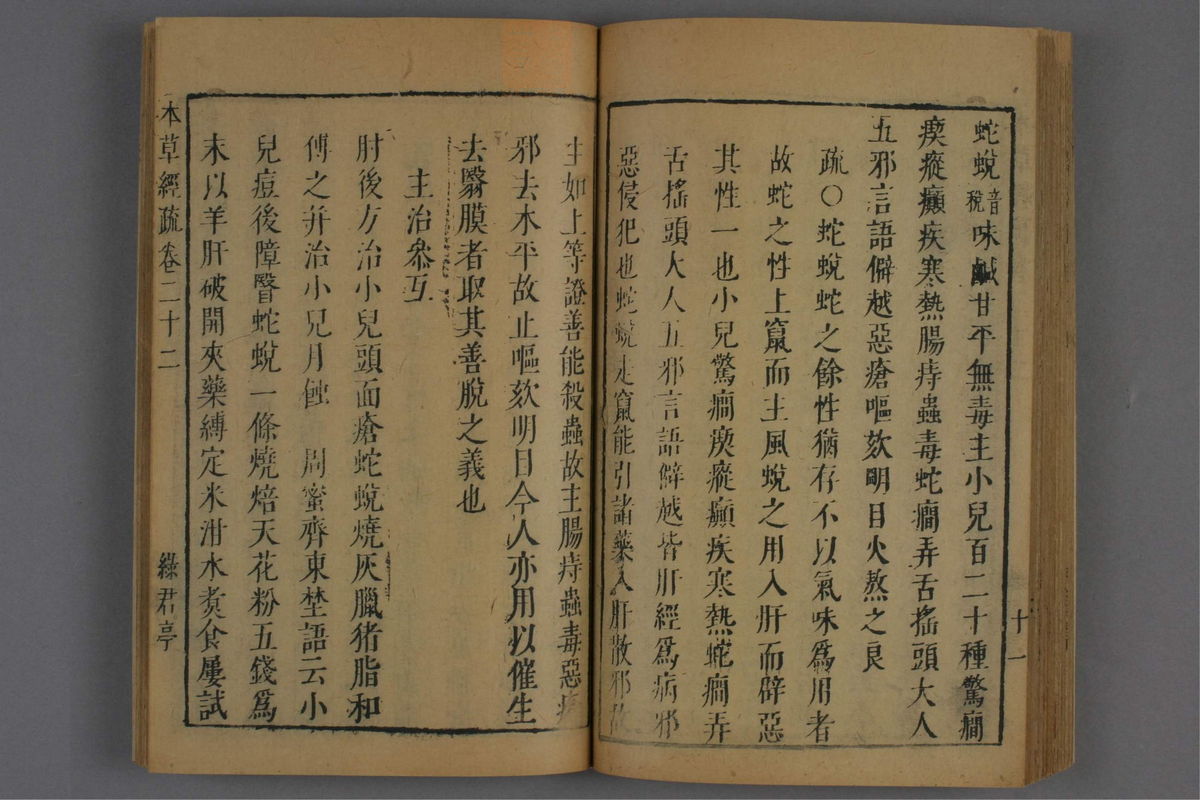 蛇蛻音稅味鹹甘平無毒主小兒百二十種驚癎
瘈瘲癲疾寒熱腸痔蟲毒蛇癎弄舌搖頭大人
五邪言語僻越惡瘡嘔欬明目火熬之良
疏○蛇蛻蛇之餘性猶存不以氣味爲用者
故蛇之性上竄而主風蛻之用入肝而辟惡
其性一也小兒驚癎瘈瘲癲疾寒熱蛇癎弄
舌搖頭大人五邪言語僻越皆肝經爲病邪
惡侵犯也蛇蛻走竄能引諸藥入肝散邪故
主如上等證善能殺蟲故主腸痔蟲毒惡瘡
邪去木平故止嘔欬明目今人亦用以催生
去翳膜者取其善脫之義也
主治叅互
肘後方治小兒頭面瘡蛇蛻燒灰臘猪脂和
傅之并治小兒月蝕 周蜜齊東埜語云小
兒痘後障瞖蛇蛻一條燒焙天花粉五錢爲
末以羊肝破開夾藥縛定米泔水煑食屢試
本草經疏卷二十二 綠君亭
十一